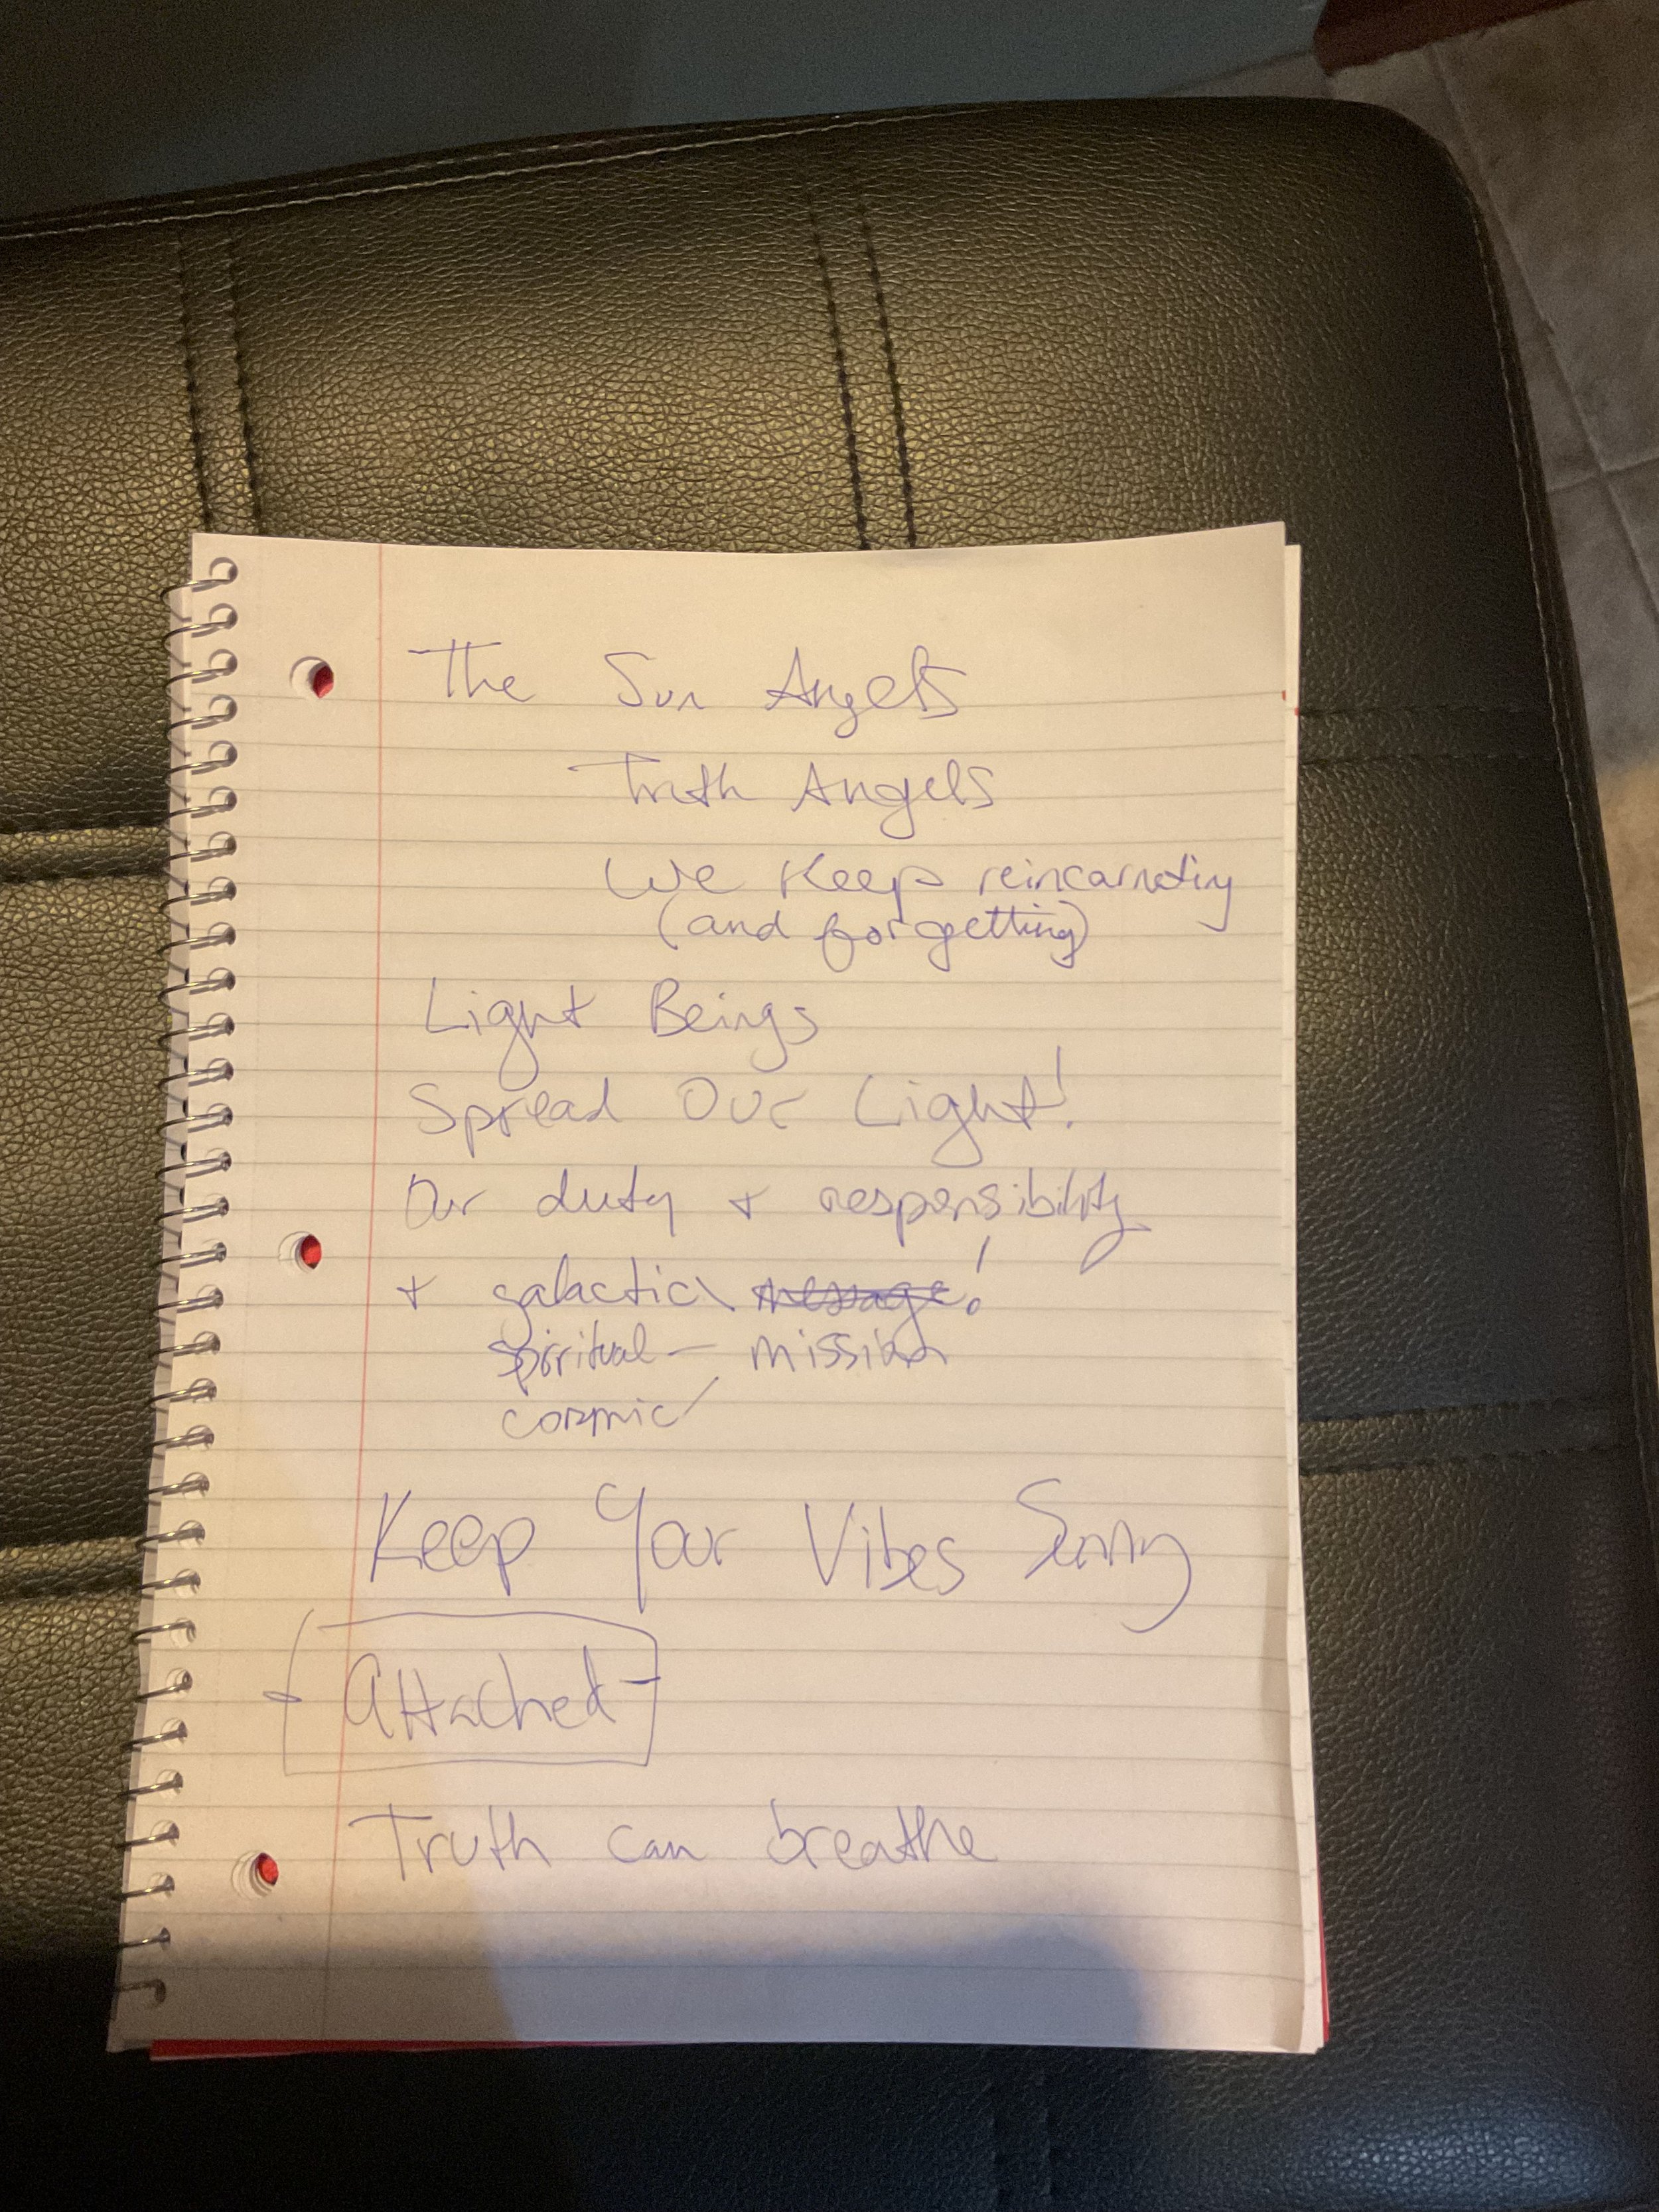 The Sun Angels
Truth Angels
We Keep reincarnating
(and forgetting)
Light Beings
Spread Our Light!
Our duty + responsibility
+ galactic message!
spiritual — mission
cosmic
Keep Your Vibes Sunny
Attached
Truth can breathe